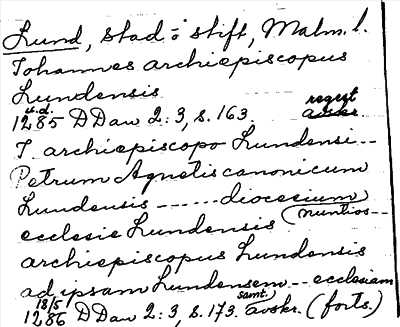 Lund, stad o stift, Malm. l.
Johannes archiepiscopus
Lundensis
u.d. regest
1285 DDan 2:3, s. 163. avskr.
J. archiepiscopo Lundensi--
Petrum Agnetis canonicum
Lundensis ------ diocesium
ecclesie Lundensis (nuntios--
archiepiscopus Lundensis
ad ipsam Lundensem -- ecclesiam
18/5 samt.
1286 DDan 2:3, s. 173. avskr. (forts.)